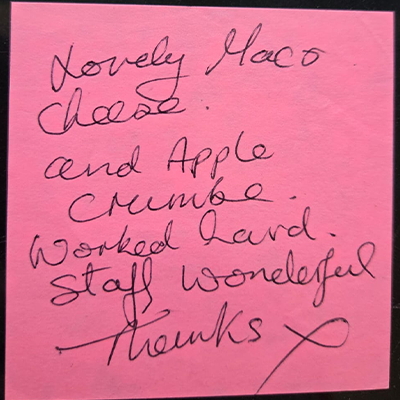 Lovely Maco
cheese.
and Apple
crumbe.
Worked hard.
Staff wonderful
Thanks x